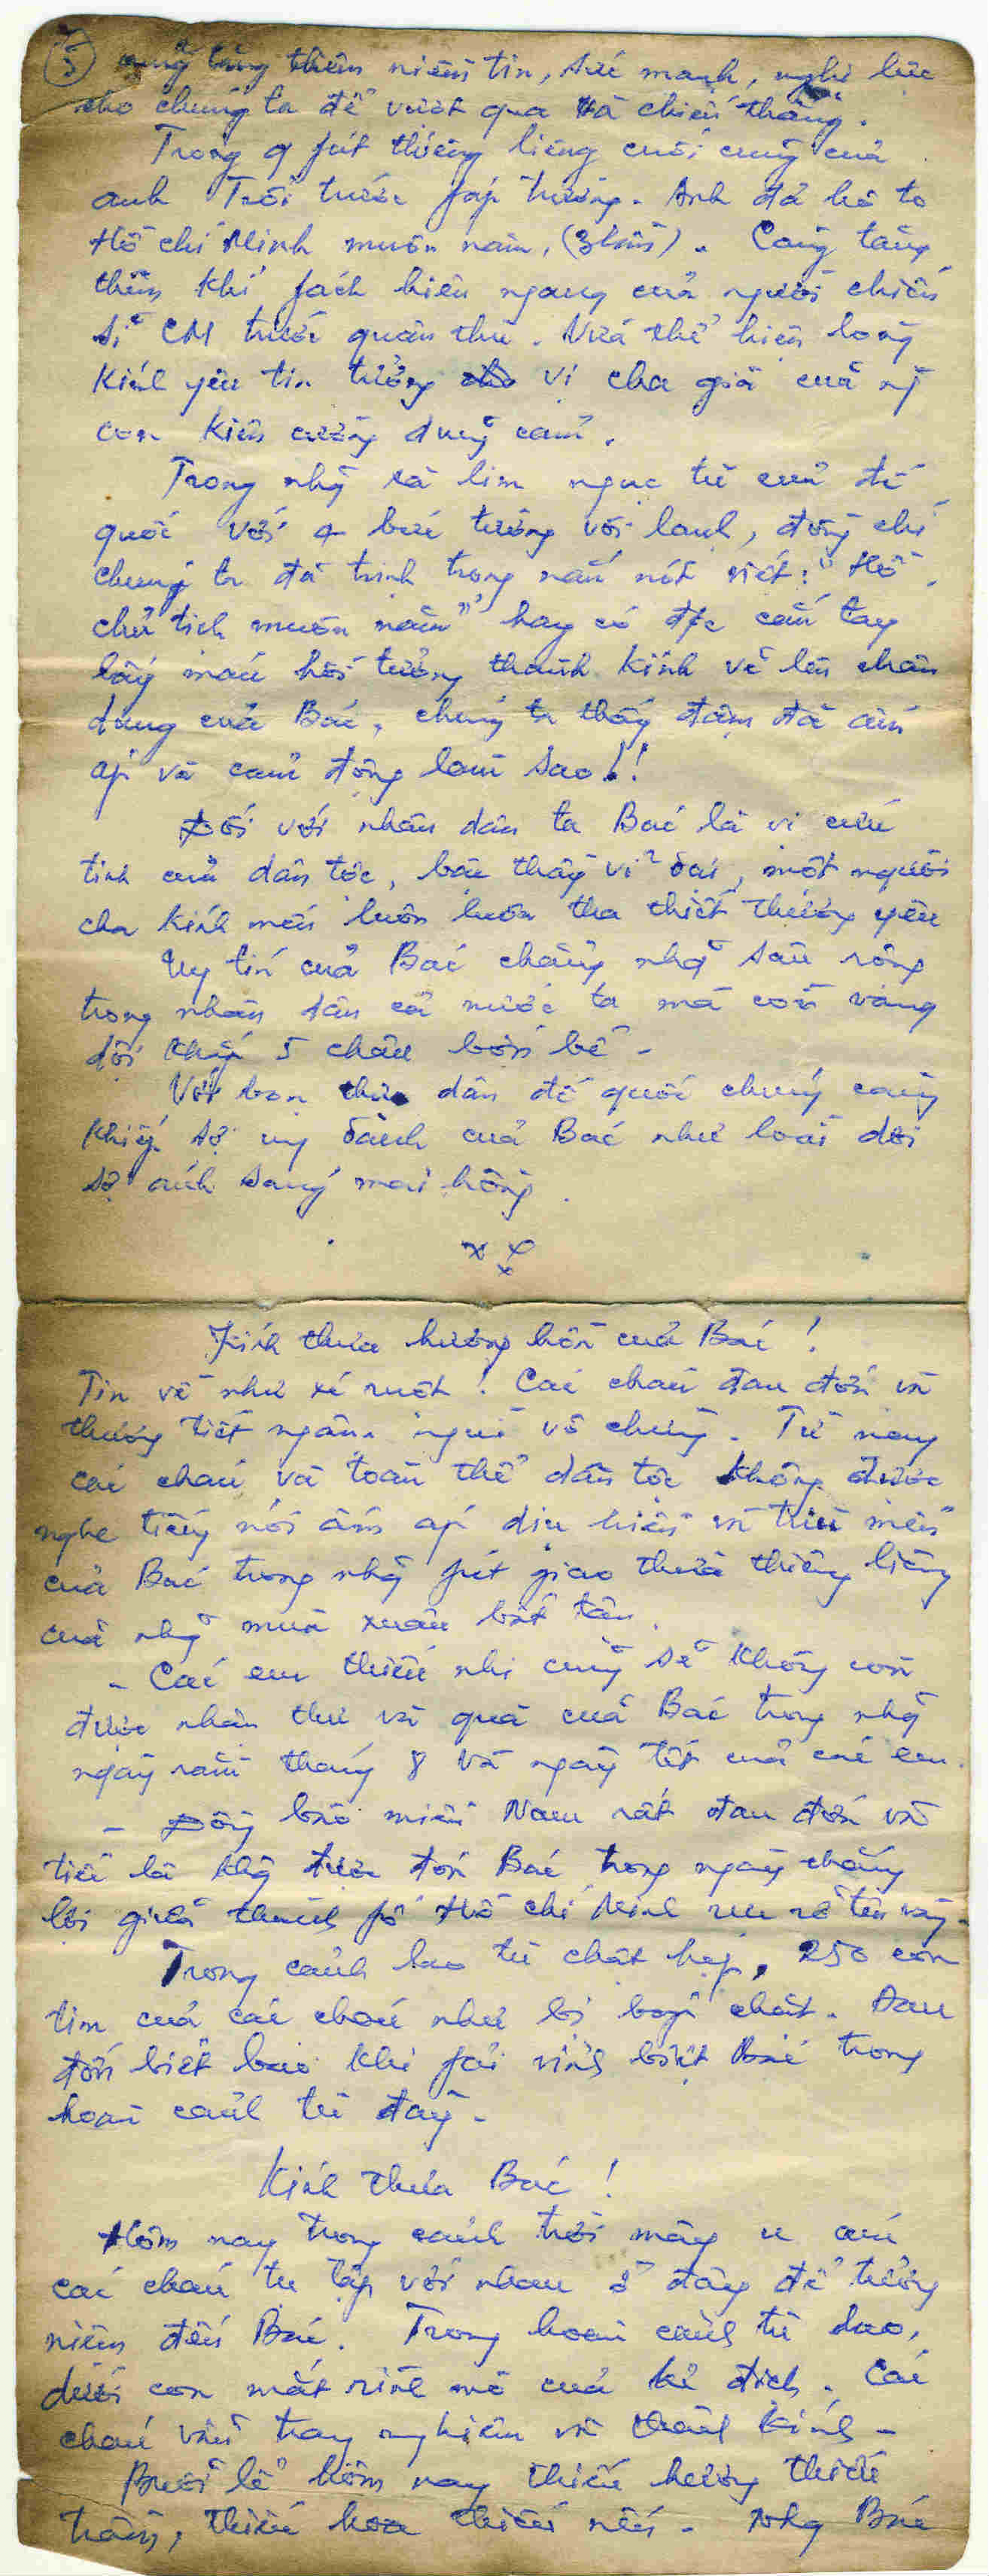 cũng tăng thêm niềm tin, sức mạnh, nghị lực
cho chúng ta để vượt qua và chiến thắng.
Trong ~ fút thiêng liêng cuối cùng của
anh Trỗi trước fáp trường. Anh đã hô to
Hồ chí Minh muôn năm, (3 lần). Càng tăng
thêm khí fách hiên ngang của người chiến
sĩ CM trước quân thù. Vừa thể hiện lòng
Kính yêu tin tưởng vị cha già của ~
con kiên cường dũng cảm.
Trong nhg~ xà lim ngục tù của đế
quốc với ~ bức tường vôi lạnh, đồng chí
chúng ta đã trịnh trọng nắn nót viết: "Hồ
chủ tịch muôn năm" hay có đ/c cắn tay
lấy máu hồi tưởng thành kính vẽ lên chân
dung của Bác, chúng ta thấy đậm đà ấm
áp và cảm động làm sao!!
Đối với nhân dân ta Bác là vị cứu
tinh của dân tộc, bậc thầy vĩ đại, một người
cha kính mến luôn luôn tha thiết thương yêu
Uy tín của Bác chẳng nhg~ sâu rộng
trong nhân dân cả nước ta mà còn vang
dội khắp 5 châu bốn bể -
Với bọn thực dân đế quốc chúng càng
khiếp sợ uy danh của Bác như loài dơi
sợ ánh sáng mai hồng.
x x
x
Kính thưa hương hồn của Bác!
Tin về như xé ruột! Các cháu đau đớn và
thương tiết ngậm ngùi vô chừng. Từ nay
các cháu và toàn thể dân tộc không được
nghe tiếng nói ấm áp dịu hiền và trìu mến
của Bác trong nhg~ fút giao thừa thiêng liêng
của nhg~ mùa xuân bất tận.
- Các em thiếu nhi cũng sẽ không còn
được nhận thư và quà của Bác trong nhg~
ngày rằm tháng 8 và ngày tết của các em.
- Đồng bào miền Nam rất đau đớn và
tiết là khg được đón Bác trong ngày thắng
lợi giữa thành fố Hồ chí Minh rực rỡ tên vàng.
Trong cảnh lao tù chật hẹp, 250 con
tim của các cháu như bị bóp chặt. Đau
đớn biết bao khi fải vĩnh biệt Bác trong
hoàn cảnh tù đày -
Kính thưa Bác!
Hôm nay trong cảnh trời mây u ám
các cháu tụ tập với nhau ở đây để tưởng
niệm đến Bác. Trong hoàn cảnh tù lao,
dưới con mắt rình mò của kẻ địch. Các
cháu vẫn trang nghiêm và thành kính -
Buổi lễ hôm nay thiếu hương thiếu
trầm, thiếu hoa thiếu nến - Nhg Bác